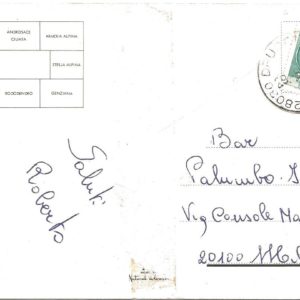 ANDROSACE
CILIATA
ARMERIA ALPINA
STELLA ALPINA
RODODENDRO
GENZIANA
Saluti
Roberto
Bar
Palumbo
Via Console Ma
20100 M
28030 D